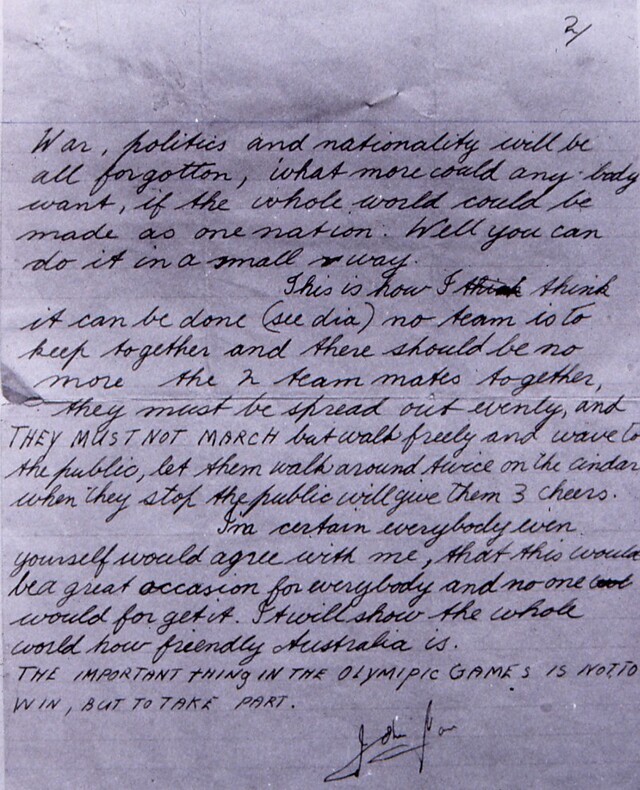 2/
War, politics and nationality will be
all forgotton, what more could any body
want, if the whole world could be
made as one nation. Well you can
do it in a small way.
This is how I think think
it can be done (see dia) no team is to
keep together and there should be no
more the 2 team mates together,
they must be spread out evenly, and
THEY MUST NOT MARCH but walk freely and wave to
the public, let them walk around twice on the cindar
when they stop the public will give them 3 cheers.
I'm certain everybody even
yourself would agree with me, that this would
be a great occasion for everybody and no one
would forget it. It will show the whole
world how friendly Australia is.
THE IMPORTANT THING IN THE OLYMPIC GAMES IS NOT TO
WIN, BUT TO TAKE PART.
John